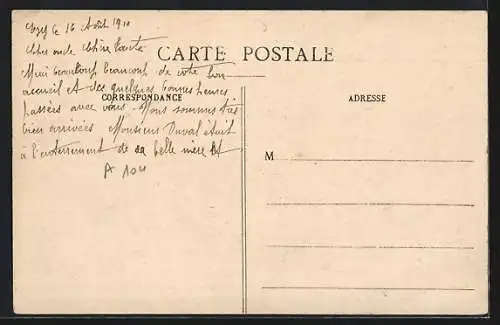 Ezy le 16 Août 1910
Cher oncle Chère tante
CARTE POSTALE
Merci beaucoup beaucoup de votre bon
accueil et des quelques bonnes heures
CORRESPONDANCE
ADRESSE
passées avec vous. Nous sommes très
bien arrivées Monsieur Duval était
à l'enterrement de sa belle mère
M